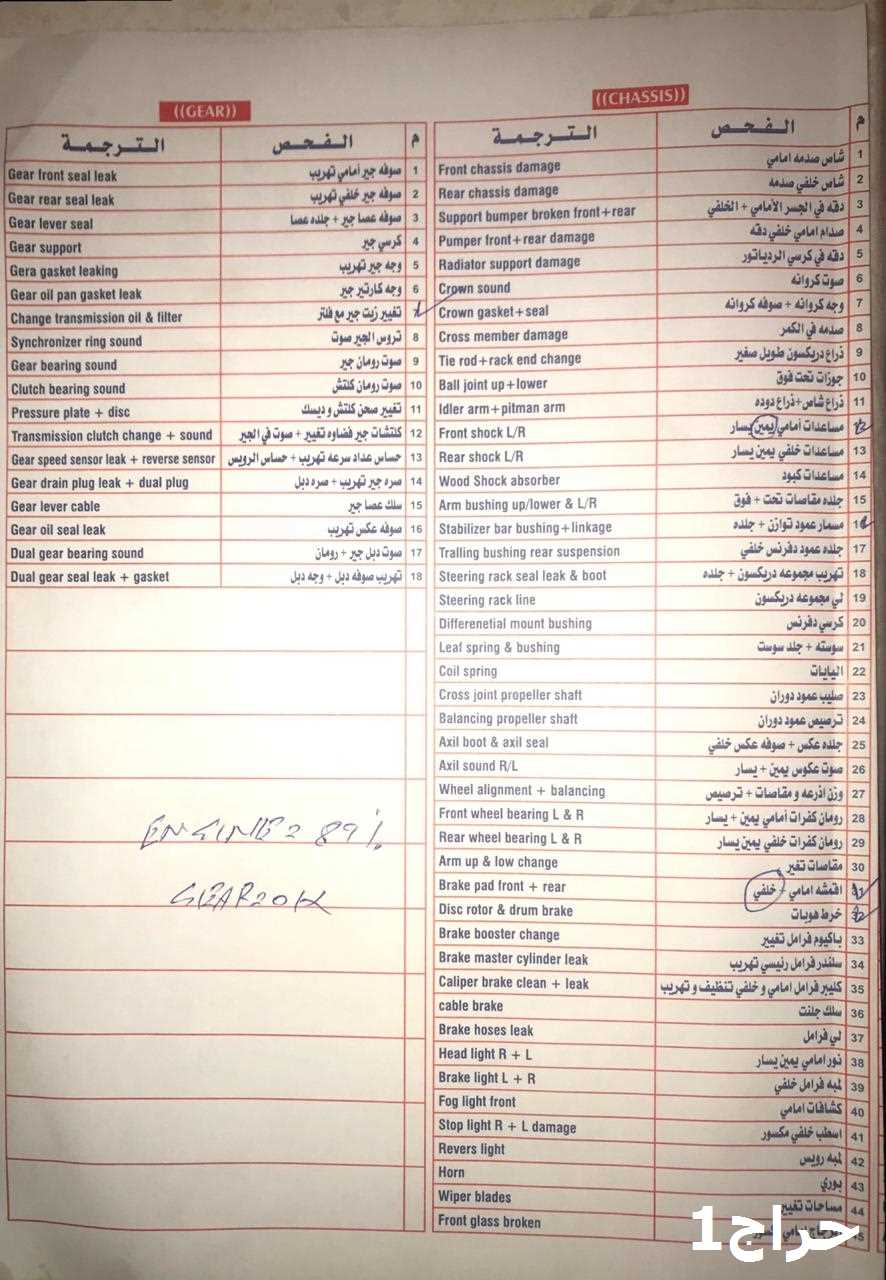 ((GEAR))
الترجمة الفحص م
Gear front seal leak صوفه جير أمامي تهريب 1
Gear rear seal leak صوفه جير خلفي تهريب 2
Gear lever seal صوفه عصا جير + جلده عصا 3
Gear support كرسي جير 4
Gera gasket leaking وجه جير تهريب 5
Gear oil pan gasket leak وجه كارتير جير 6
Change transmission oil & filter تغيير زيت جير مع فلتر
Synchronizer ring sound تروس الجير صوت 8
Gear bearing sound صوت رومان جير 9
Clutch bearing sound صوت رومان كلتش 10
Pressure plate + disc تغيير صحن كلتش و ديسك 11
Transmission clutch change + sound كلتشات جير فضاوه تغيير + صوت في الجير 12
Gear speed sensor leak + reverse sensor حساس عداد سرعه تهريب + حساس الرويس 13
Gear drain plug leak + dual plug صره جير تهريب + صره دبل 14
Gear lever cable سلك عصا جير 15
Gear oil seal leak صوفه عكس تهريب 16
Dual gear bearing sound صوت دبل جير + رومان 17
Dual gear seal leak + gasket تهريب صوفه دبل + وجه دبل 18
ENGINE = 89%
GEAR = OK
((CHASSIS))
الترجمة الفحص م
Front chassis damage شاص صدمه امامي 1
Rear chassis damage شاص خلفي صدمه 2
Support bumper broken front+rear دقه في الجسر الأمامي + الخلفي 3
Pumper front+rear damage صدام امامي خلفي دقه 4
Radiator support damage دقه في كرسي الردياتور 5
Crown sound صوت كروانه 6
Crown gasket+seal وجه كروانه + صوفه كروانه 7
Cross member damage صدمه في الكمر 8
Tie rod+rack end change ذراع دريكسون طويل صغير 9
Ball joint up+lower جوزات تحت فوق 10
Idler arm+pitman arm ذراع شاص+ذراع دوده 11
Front shock L/R مساعدات أمامي يمين يسار 12
Rear shock L/R مساعدات خلفي يمين يسار 13
Wood Shock absorber مساعدات كبود 14
Arm bushing up/lower & L/R جلده مقاصات تحت + فوق 15
Stabilizer bar bushing+linkage مسمار عمود توازن + جلده 16
Tralling bushing rear suspension جلده عمود دفرنس خلفي 17
Steering rack seal leak & boot تهريب مجموعه دريكسون + جلده 18
Steering rack line لي مجموعه دريكسون 19
Differenetial mount bushing كرسي دفرنس 20
Leaf spring & bushing سوسته + جلد سوست 21
Coil spring اليايات 22
Cross joint propeller shaft صليب عمود دوران 23
Balancing propeller shaft ترصيص عمود دوران 24
Axil boot & axil seal جلده عكس + صوفه عكس خلفي 25
Axil sound R/L صوت عكوس يمين + يسار 26
Wheel alignment + balancing وزن أذرعه و مقاصات + ترصيص 27
Front wheel bearing L & R رومان كفرات أمامي يمين + يسار 28
Rear wheel bearing L & R رومان كفرات خلفي يمين يسار 29
Arm up & low change مقاصات تغير 30
Brake pad front + rear اقمشه امامي + خلفي 31
Disc rotor & drum brake خرط هوبات 32
Brake booster change باكيوم فرامل تغيير 33
Brake master cylinder leak سلندر فرامل رئيسي تهريب 34
Caliper brake clean + leak كليبر فرامل امامي و خلفي تنظيف و تهريب 35
cable brake سلك جلنت 36
Brake hoses leak لي فرامل 37
Head light R + L نور امامي يمين يسار 38
Brake light L + R لمبه فرامل خلفي 39
Fog light front كشافات امامي 40
Stop light R + L damage اسطب خلفي مكسور 41
Revers light لمبه رويس 42
Horn بوري 43
Wiper blades مساحات تغيير 44
Front glass broken امامي 45
حراج1